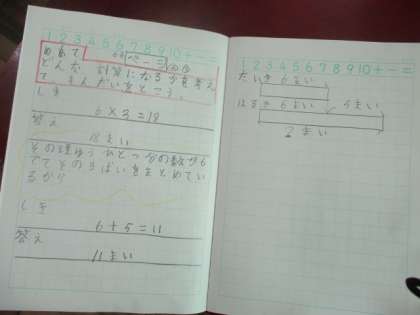 1 2 3 4 5 6 7 8 9 10 + - =
めあて
どんな 計算になるかを考え
て もんだいをとこう。
しき
6×3=18
答え
18まい
その理ゆう ひとつ分の数が6
で その3ばいをもとめてい
るから
しき
6+5=11
答え
11まい
1 2 3 4 5 6 7 8 9 10 + - =
だいき 6まい
はるき 6まい 5まい
?まい